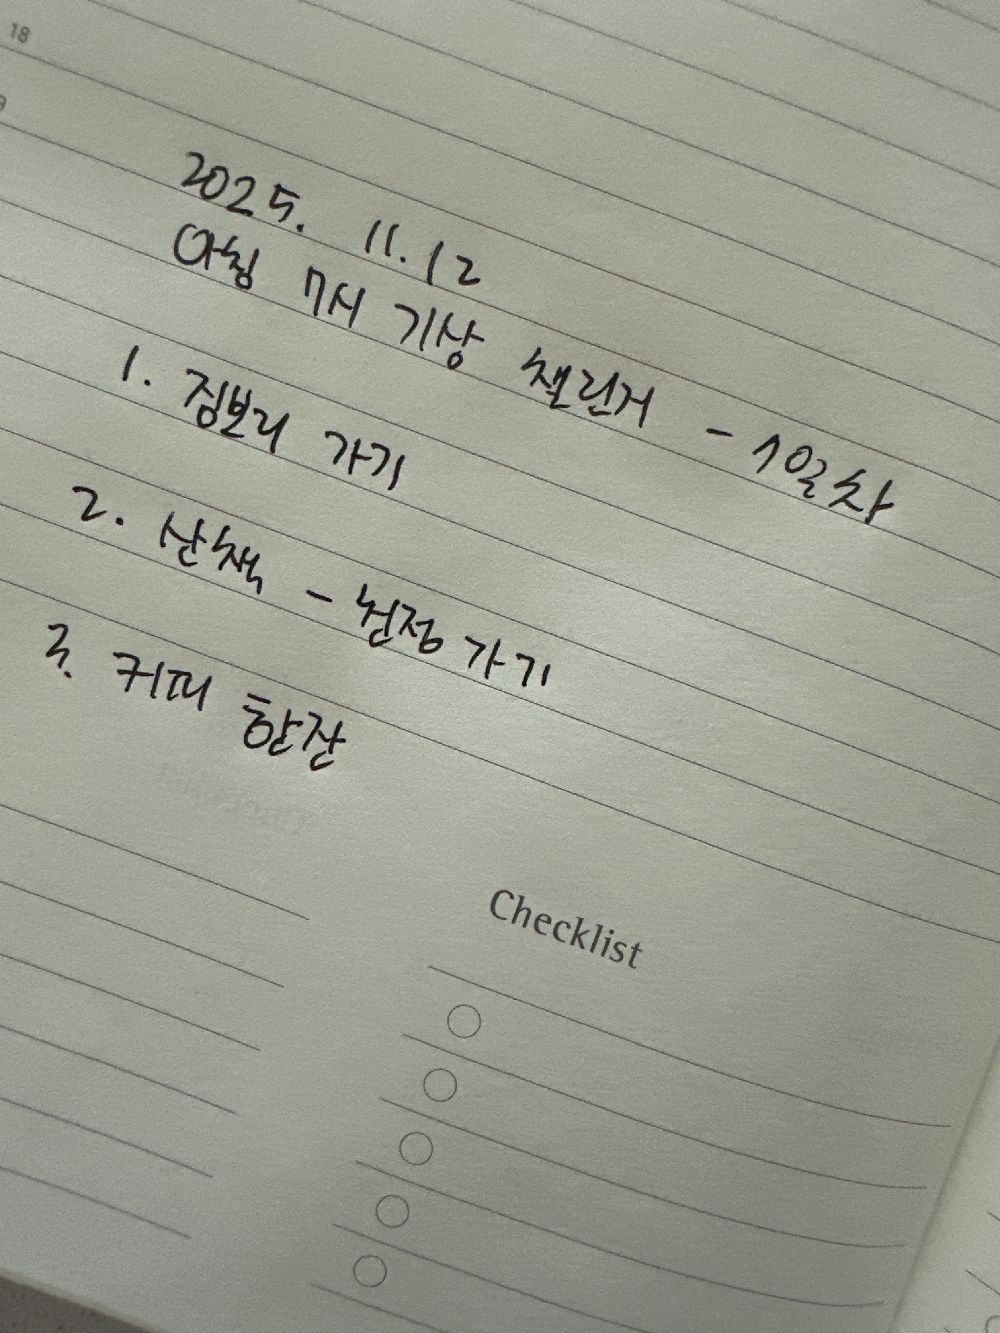 18
2025. 11. 12
아침 7시 기상 챌린저 - 1일차
1. 짐보리 가기
2. 산책 - 뒷정 가기
3. 커피 한잔
Checklist